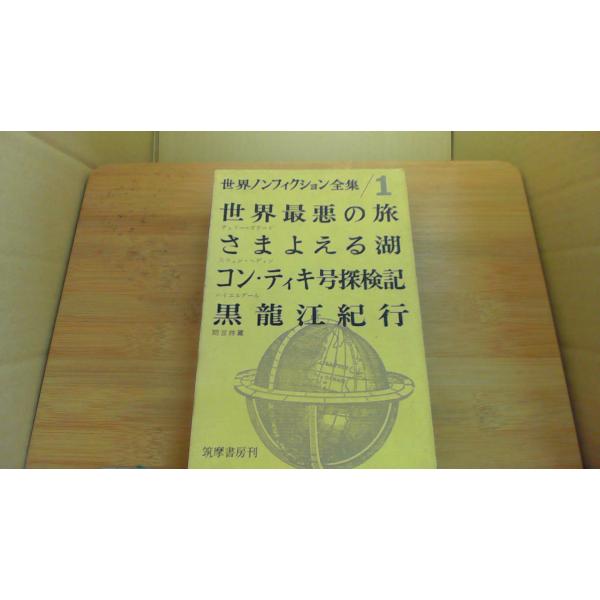 世界ノンフィクション全集/1
世界最悪の旅
チェリー・ガラード
さまよえる湖
スウェン・ヘディン
コン・ティキ号探検記
ハイエルダール
黒龍江紀行
間宮林蔵
筑摩書房刊